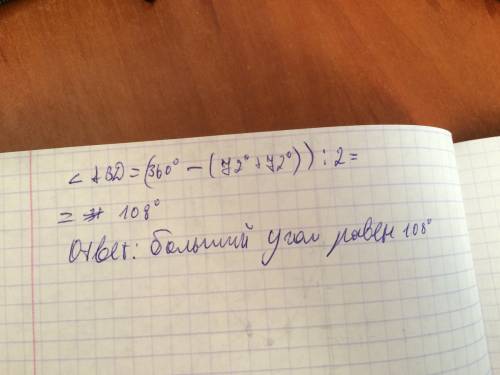 ∠ABD=(360°-(72°+72°)):2=
= 108°
Ответ: больший угол равен 108°